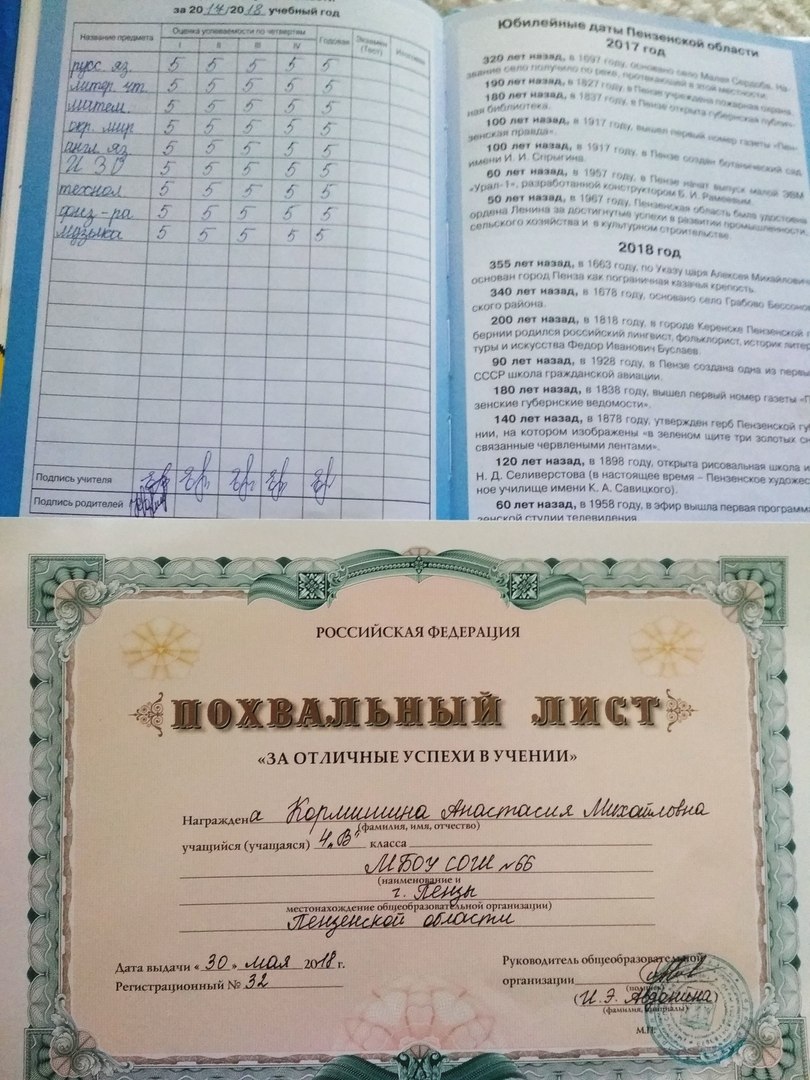 за 2017/2018 учебный год
Название предмета
Оценка успеваемости по четвертям
Годовая
Экзамен (Тест)
Итоговая
I II III IV
русс. яз. 5 5 5 5 5
литер. чт. 5 5 5 5 5
матем. 5 5 5 5 5
окр. мир 5 5 5 5 5
англ. яз 5 5 5 5 5
ИЗО 5 5 5 5 5
технол 5 5 5 5 5
физ-ра 5 5 5 5 5
музыка 5 5 5 5 5
Подпись учителя
Подпись родителей
Юбилейные даты Пензенской области
2017 год
320 лет назад, в 1697 году, основано село Малая Сердоба. На-
звание село получило по реке, протекающей в этой местности.
190 лет назад, в 1827 году, в Пензе учреждена пожарная охрана.
180 лет назад, в 1837 году, в Пензе открыта губернская публич-
ная библиотека.
100 лет назад, в 1917 году, вышел первый номер газеты «Пен-
зенская правда».
100 лет назад, в 1917 году, в Пензе создан ботанический сад
имени И. И. Спрыгина.
60 лет назад, в 1957 году, в Пензе начат выпуск малой ЭВМ
«Урал-1», разработанной конструктором Б. И. Рамеевым.
50 лет назад, в 1967 году, Пензенская область была удостоена
ордена Ленина за достигнутые успехи в развитии промышленности,
сельского хозяйства и в культурном строительстве.
2018 год
355 лет назад, в 1663 году, по Указу царя Алексея Михайлович
основан город Пенза как пограничная казачья крепость.
340 лет назад, в 1678 году, основано село Грабово Бессон
ского района.
200 лет назад, в 1818 году, в городе Керенске Пензенской г
бернии родился российский лингвист, фольклорист, историк литер
туры и искусства Федор Иванович Буслаев.
90 лет назад, в 1928 году, в Пензе создана одна из первы
СССР школа гражданской авиации.
180 лет назад, в 1838 году, вышел первый номер газеты «П
зенские губернские ведомости».
140 лет назад, в 1878 году, утвержден герб Пензенской гу
нии, на котором изображены «в зеленом щите три золотых сн
связанные червлеными лентами».
120 лет назад, в 1898 году, открыта рисовальная школа и
Н. Д. Селиверстова (в настоящее время – Пензенское художес
ное училище имени К. А. Савицкого).
60 лет назад, в 1958 году, в эфир вышла первая программа
зенской студии телевидения.
РОССИЙСКАЯ ФЕДЕРАЦИЯ
ПОХВАЛЬНЫЙ ЛИСТ
«ЗА ОТЛИЧНЫЕ УСПЕХИ В УЧЕНИИ»
Награждена Кормишина Анастасия Михайловна
(фамилия, имя, отчество)
учащийся (учащаяся) 4 „В" класса
МБОУ СОШ №66
(наименование и
г. Пензы
местонахождение общеобразовательной организации)
Пензенской области
Дата выдачи « 30 » мая 2018 г.
Регистрационный № 32
Руководитель общеобразовательной
организации
(подпись)
(И.Э. Авдонина)
(фамилия, инициалы)
М.П.